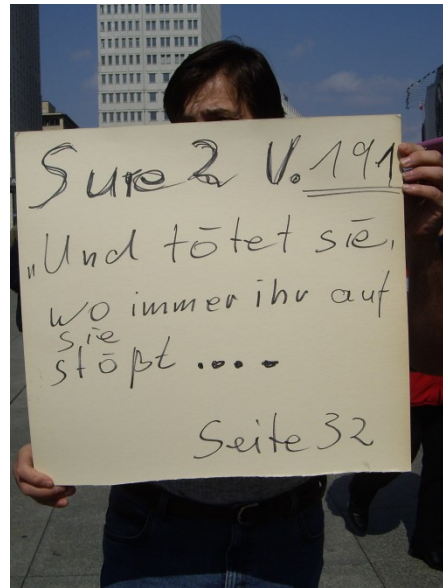 Sure 2 V. 191
„Und tötet sie,
wo immer ihr auf
sie
stößt ....
Seite 32